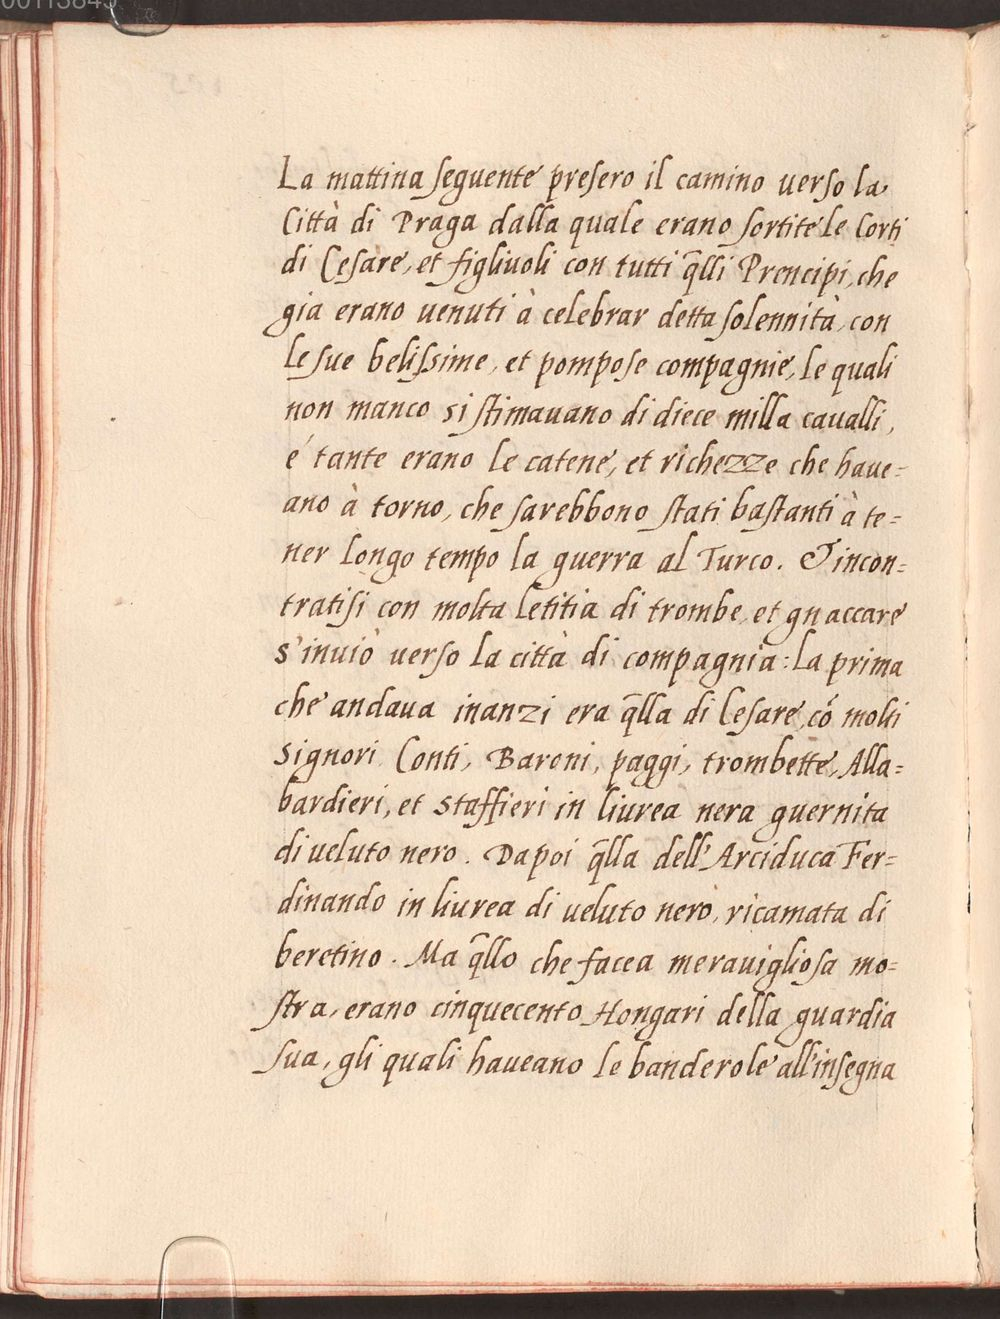 00113845
La mattina seguente presero il camino uerso la
Città di Praga dalla quale erano sortite le Corti
di Cesare, et figliuoli con tutti q̃lli Prencipi, che
gia erano uenuti à celebrar detta solennità, con
le sue belissime, et pompose compagnie, le quali
non manco si stimauano di diece milla caualli,
é tante erano le catene, et richezze che haue=
ano à torno, che sarebbono stati bastanti à te=
ner longo tempo la guerra al Turco. Et incon=
tratisi con molta letitia di trombe, et gnaccare
s'inuiò uerso la città di compagnia: la prima
che andaua inanzi era q̃lla di Cesare, cõ molti
Signori Conti, Baroni, paggi, trombette, Alla=
bardieri, et staffieri in liurea nera guernita
di ueluto nero. Dapoi q̃lla dell'Arciduca Fer=
dinando in liurea di ueluto nero, ricamata di
beretino. Ma q̃llo che facea merauigliosa mo=
stra, erano cinquecento Hongari della guardia
sua, gli quali haueano le banderole all'insegna